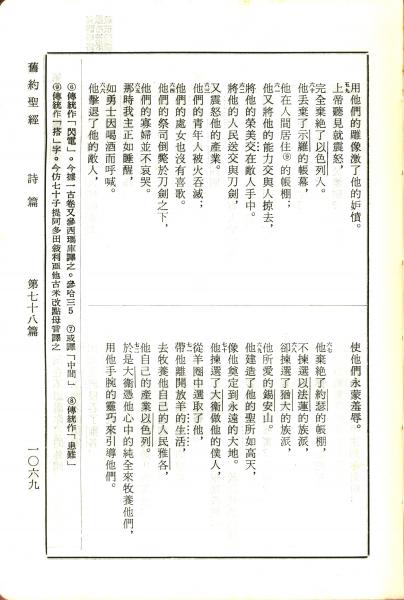 用他們的雕像激了他的妒憤。
五九上帝聽見就震怒,
完全棄絕了以色列人。
六十他丟棄了示羅的帳幕,
他在人間居住⑨的帳棚;
六一他又將他的能力交與人擄去,
將他的榮美交在敵人手中。
六二將他的人民送交與刀劍,
又震怒他的產業。
六三他們的青年人被火吞滅;
他們的處女也沒有喜歌。
六四他們的祭司倒斃於刀劍之下,
他們的寡婦並不哀哭。
六五那時我主正如睡醒,
如勇士因喝酒而呼喊。
六六他擊退了他的敵人,
使他們永蒙羞辱。
六七他棄絕了約瑟的帳棚,
不揀選以法蓮的族派,
六八卻揀選了猶大的族派,
他所愛的錫安山。
六九他建造了他的聖所如高天,
像他奠定到永遠的大地。
七十他揀選了大衛做他的僕人,
從羊圈中選取了他,
七一帶他離開放羊的生活,
去牧養他自己的人民雅各,
他自己的產業以色列。
七二於是大衛憑他心中的純全來牧養他們,
用他手腕的靈巧來引導他們。
⑥傳統作「閃電」。今據一古卷又參西瑪庫譯之。參哈三5 ⑦或譯「中間」 ⑧傳統作「患難」
⑨傳統作「搭」字。今仿七十子提阿多田敘利亞他古米改點母音譯之
舊約聖經 詩篇 第七十八篇 一〇六九